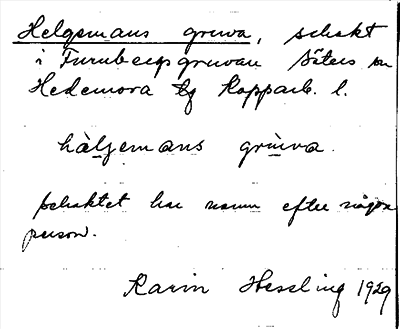 Helgemans gruva, schakt
i Turnbergsgruvan Säters sn
Hedemora tg Kopparb. l.
hàlgemans grùva.
schaktet har namn efter någon
person.
Karin Hessling 1929